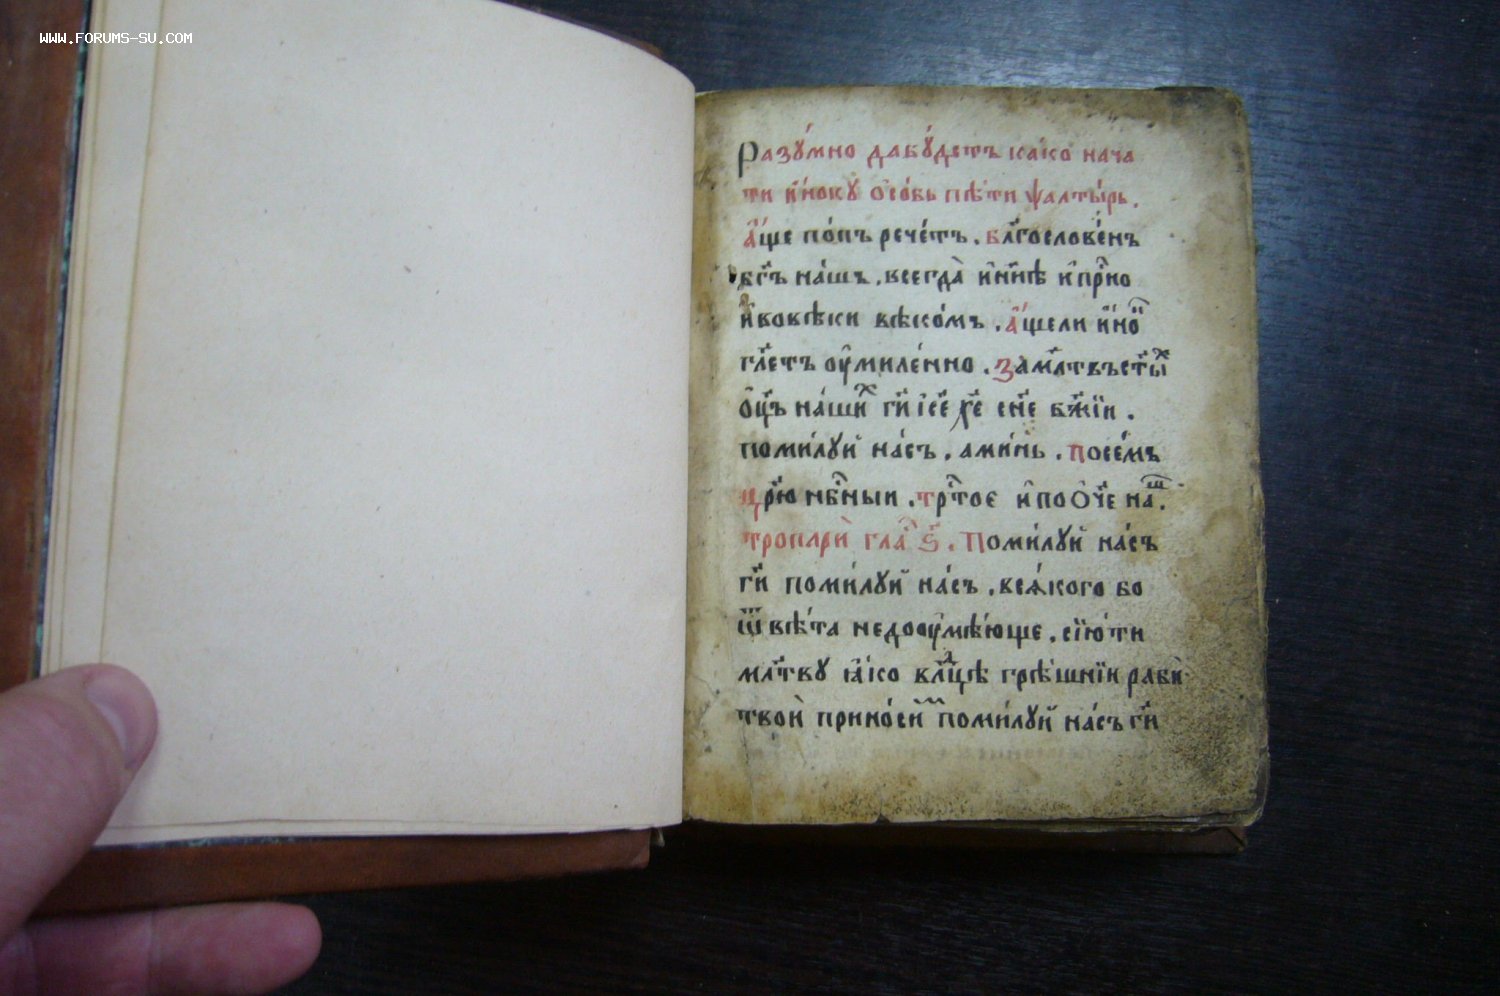 WWW.FORUMS-SU.COM
Разꙋ́мно дабꙋ́детъ ка́ко нача
ти и҆́нокꙋ ѻ҆со́бь пѣ́ти ѱалты́рь.
А҆́ще по́пъ рече́тъ. бл҃гослове́нъ
бг҃ъ на́шъ. всегда̀ и҆ нн҃ѣ и҆ прⷭ҇но
и҆ вовѣ́ки вѣко́мъ. а҆́щели и҆но́й
гл҃етъ оу҆миле́нно. за мл҃твъ ст҃ыⷯ
ѻ҆ц҃ъ на́шиⷯ гд҇и і҆с҃е хс҃е сн҃е бж҃їи.
поми́лꙋй на́съ. ами́нь. посе́мъ
цр҃ю нбⷭ҇ныи. трⷭ҇тое и҆ по о҆́ч҃е наⷲ҇.
тропарѝ гла́ ѕ҃. Поми́лꙋй на́съ
гд҇и поми́лꙋй на́съ. вся́кого бо
ѿвѣ́та недооумѣ́юще. сїю́ ти
мл҃твꙋ ꙗ҆́ко влⷣцѣ грѣ́шнїи раби̏
твоѝ прино́сиⷨ поми́лꙋй на́съ гд҇и